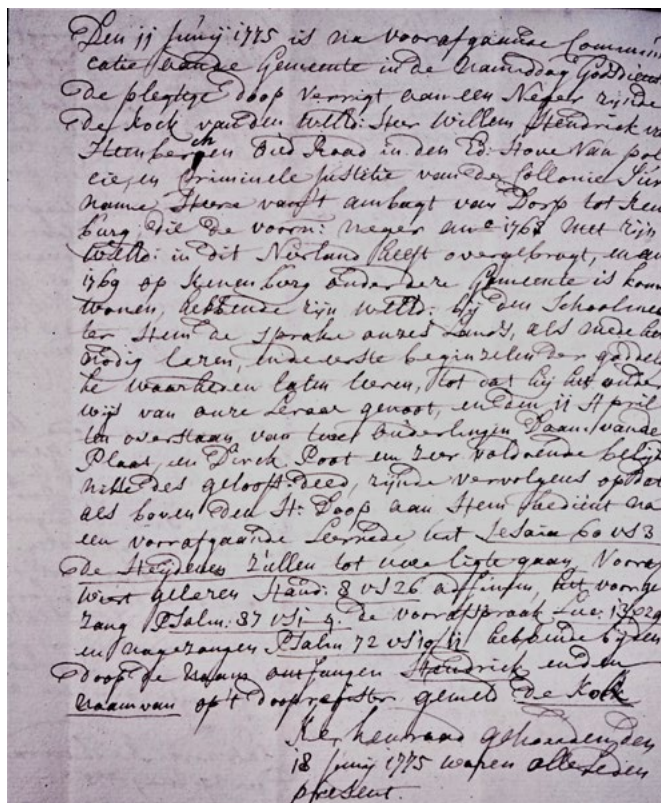 Den 11 Junij 1775 is na voorafgaande Commúni
catie vande Gemeente in de namiddag Godsdienst
de plegtige doop verrigt aan een Neger zijnde
de kock van den Weld: Heer Willem Hendrick va
Steenberchen Oud Raad in den Ed: Hove van poli
cie, en Criminele Justitie van de Collonie Suri
name Heere van't ambagt van Dorp tot Kene
burg, die de voorn: neger an: 1768 met zijn
Weld: in dit Nederland heeft overgebragt, en an
1769 op Kenenburg onder deze Gemeente is kome
wonen, hebbende zijn Weld: bij den Schoolmees
ter Hem de sprake onzes Lands, als mede het
nodig lezen, en de eerste beginzelen der goddely
ke waarheden laten leeren, tot dat hij het onder
wijs van onze Leraar genoot, en den 11 April
ten overstaan van twee ouderlingen Daan. vande
Plaat, en Dirck Poot een zeer voldoende belijd
nisse des geloofs deed, zijnde vervolgens op dato
als boven den H: Doop aan Hem bedient na
een voorafgaande Leerrede uit Jesaia 60 vs 3
De Heijdenen zúllen tot uwe ligte gaan, Vooraf
wert gelezen Hand: 8 vs 26 ad finem, het voorge
zang Psalm: 87 vs 1-4. de voorafspraak Luc: 13 vs 29
en nagezangen Psalm 72 vs 10, 11 hebbende bij den
doop de naam ontfangen Hendrick en den
naam van op't doopregister gemeld de Kock
Kerkenraad gehouden den
18 Junij 1775 waren alle leden
present.